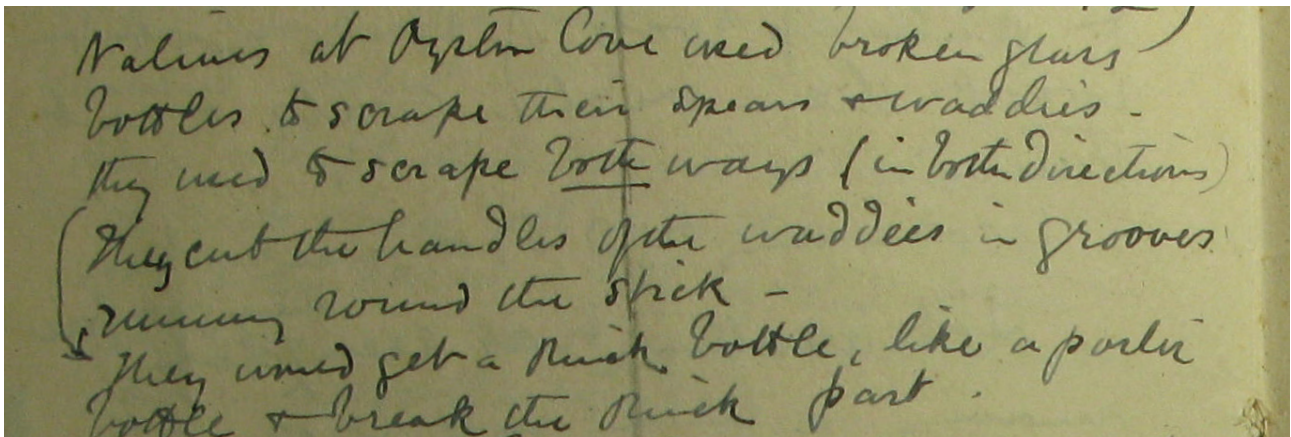 Natives at Oyster Cove used broken glass
bottles to scrape their spears + waddies -
they used to scrape both ways (in both directions)
They cut the handles of the waddies in grooves
running round the stick -
They would get a thick bottle, like a porter
bottle + break the thick part.